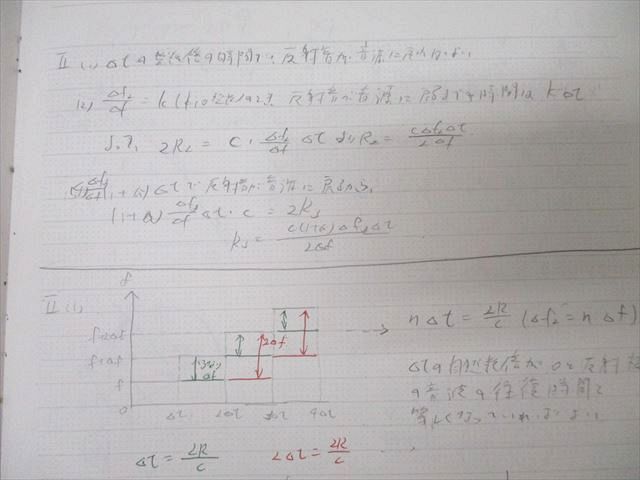 II (1) Δtの整数倍の時間で、反射音が音源に戻ればよい
(2) Δf₂/Δf = k (kは整数)のとき 反射音が音源に戻るまでの時間は kΔt
よって、2R₂ = c・Δf₂/Δf Δt ∴ R₂ = cΔf₂Δt/2Δf
(1+a)Δtで反射音が音源に戻るから、
(1+a) Δf₃/Δf Δt・c = 2R₃
R₃ = c(1+a)Δf₃Δt/2Δf
II (1)
f
f+2Δf
f+Δf
f
0
Δt 2Δt 3Δt 4Δt
Δf
2Δf
nΔt = 2R/c (Δf₂ = nΔf)
Δtの自然数倍が 反射
の音波の往復時間と
等しくなっていればよい
Δt = 2R/c 2Δt = 2R/c